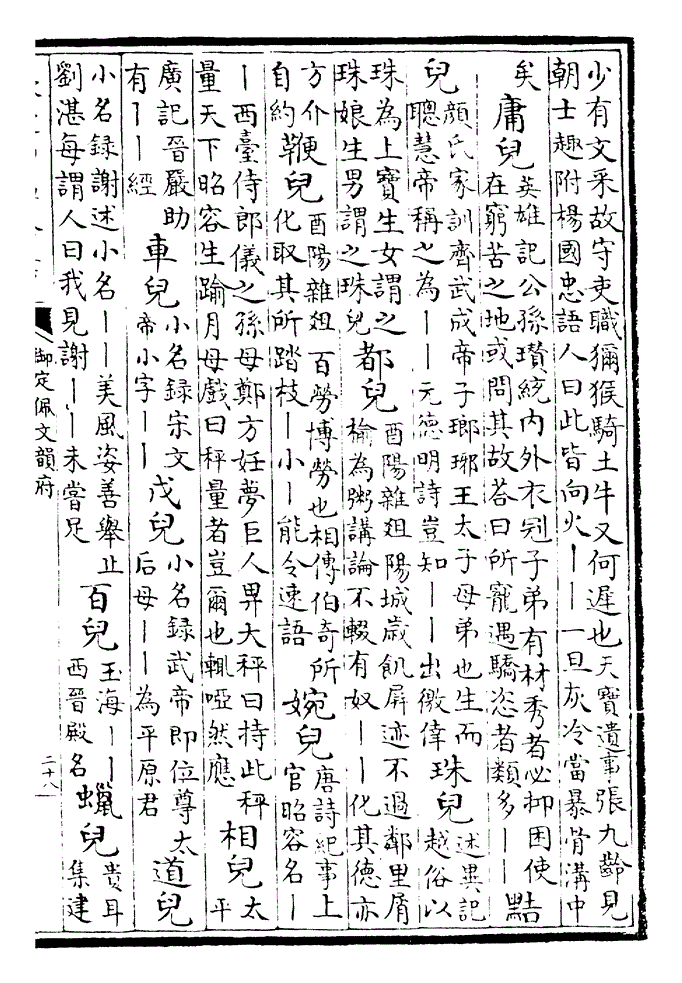 少有文采故守吏職獼猴騎土牛又何遲也天寶遺事張九齡見
朝士趣附楊國忠語人曰此皆向火丨丨一旦灰冷當暴骨溝中
矣庸兒英雄記公孫瓚統內外衣冠子弟有材秀者必抑困使
在窮苦之地或問其故荅曰所寵遇驕恣者類多丨丨黠
兒顏氏家訓齊武成帝子瑯琊王太子母弟也生而
聰慧帝稱之為丨丨元德明詩豈知丨丨出徼倖珠兒述異記
越俗以
珠為上寶生女謂之
珠娘生男謂之珠兒都兒酉陽雜俎陽城歲飢屏迹不過鄰里屑
榆為粥講論不輟有奴丨丨化其德亦
方介
自約鞭兒酉陽雜俎百勞博勞也相傳伯奇所
化取其所踏枝丨小丨能令速語婉兒唐詩紀事上
官昭容名丨
丨西臺侍郎儀之孫母鄭方妊夢巨人畀大秤曰持此秤
量天下昭容生踰月母戲曰秤量者豈爾也輒啞然應相兒太
平
廣記晉嚴助
有丨丨經車兒小名録宋文
帝小字丨丨戊兒小名録武帝即位尊太
后母丨丨為平原君道兒
小名録謝述小名丨丨美風姿善舉止
劉湛每謂人曰我見謝丨丨未嘗足百兒玉海丨丨
西晉殿名蠟兒貴耳
集建
御定佩文韻府
二十八